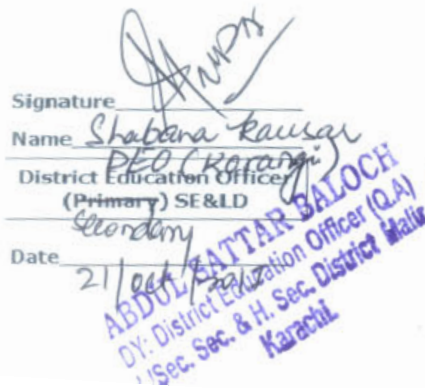 Signature
Name Shabana Kausar
DEO (Korangi)
District Education Officer
(Primary) SE&LD
Secondary
Date
21/Oct/
ABDUL SATTAR BALOCH
DY: District Education Officer (Q.A)
(Sec. Sec. & H. Sec. District Malir
Karachi.